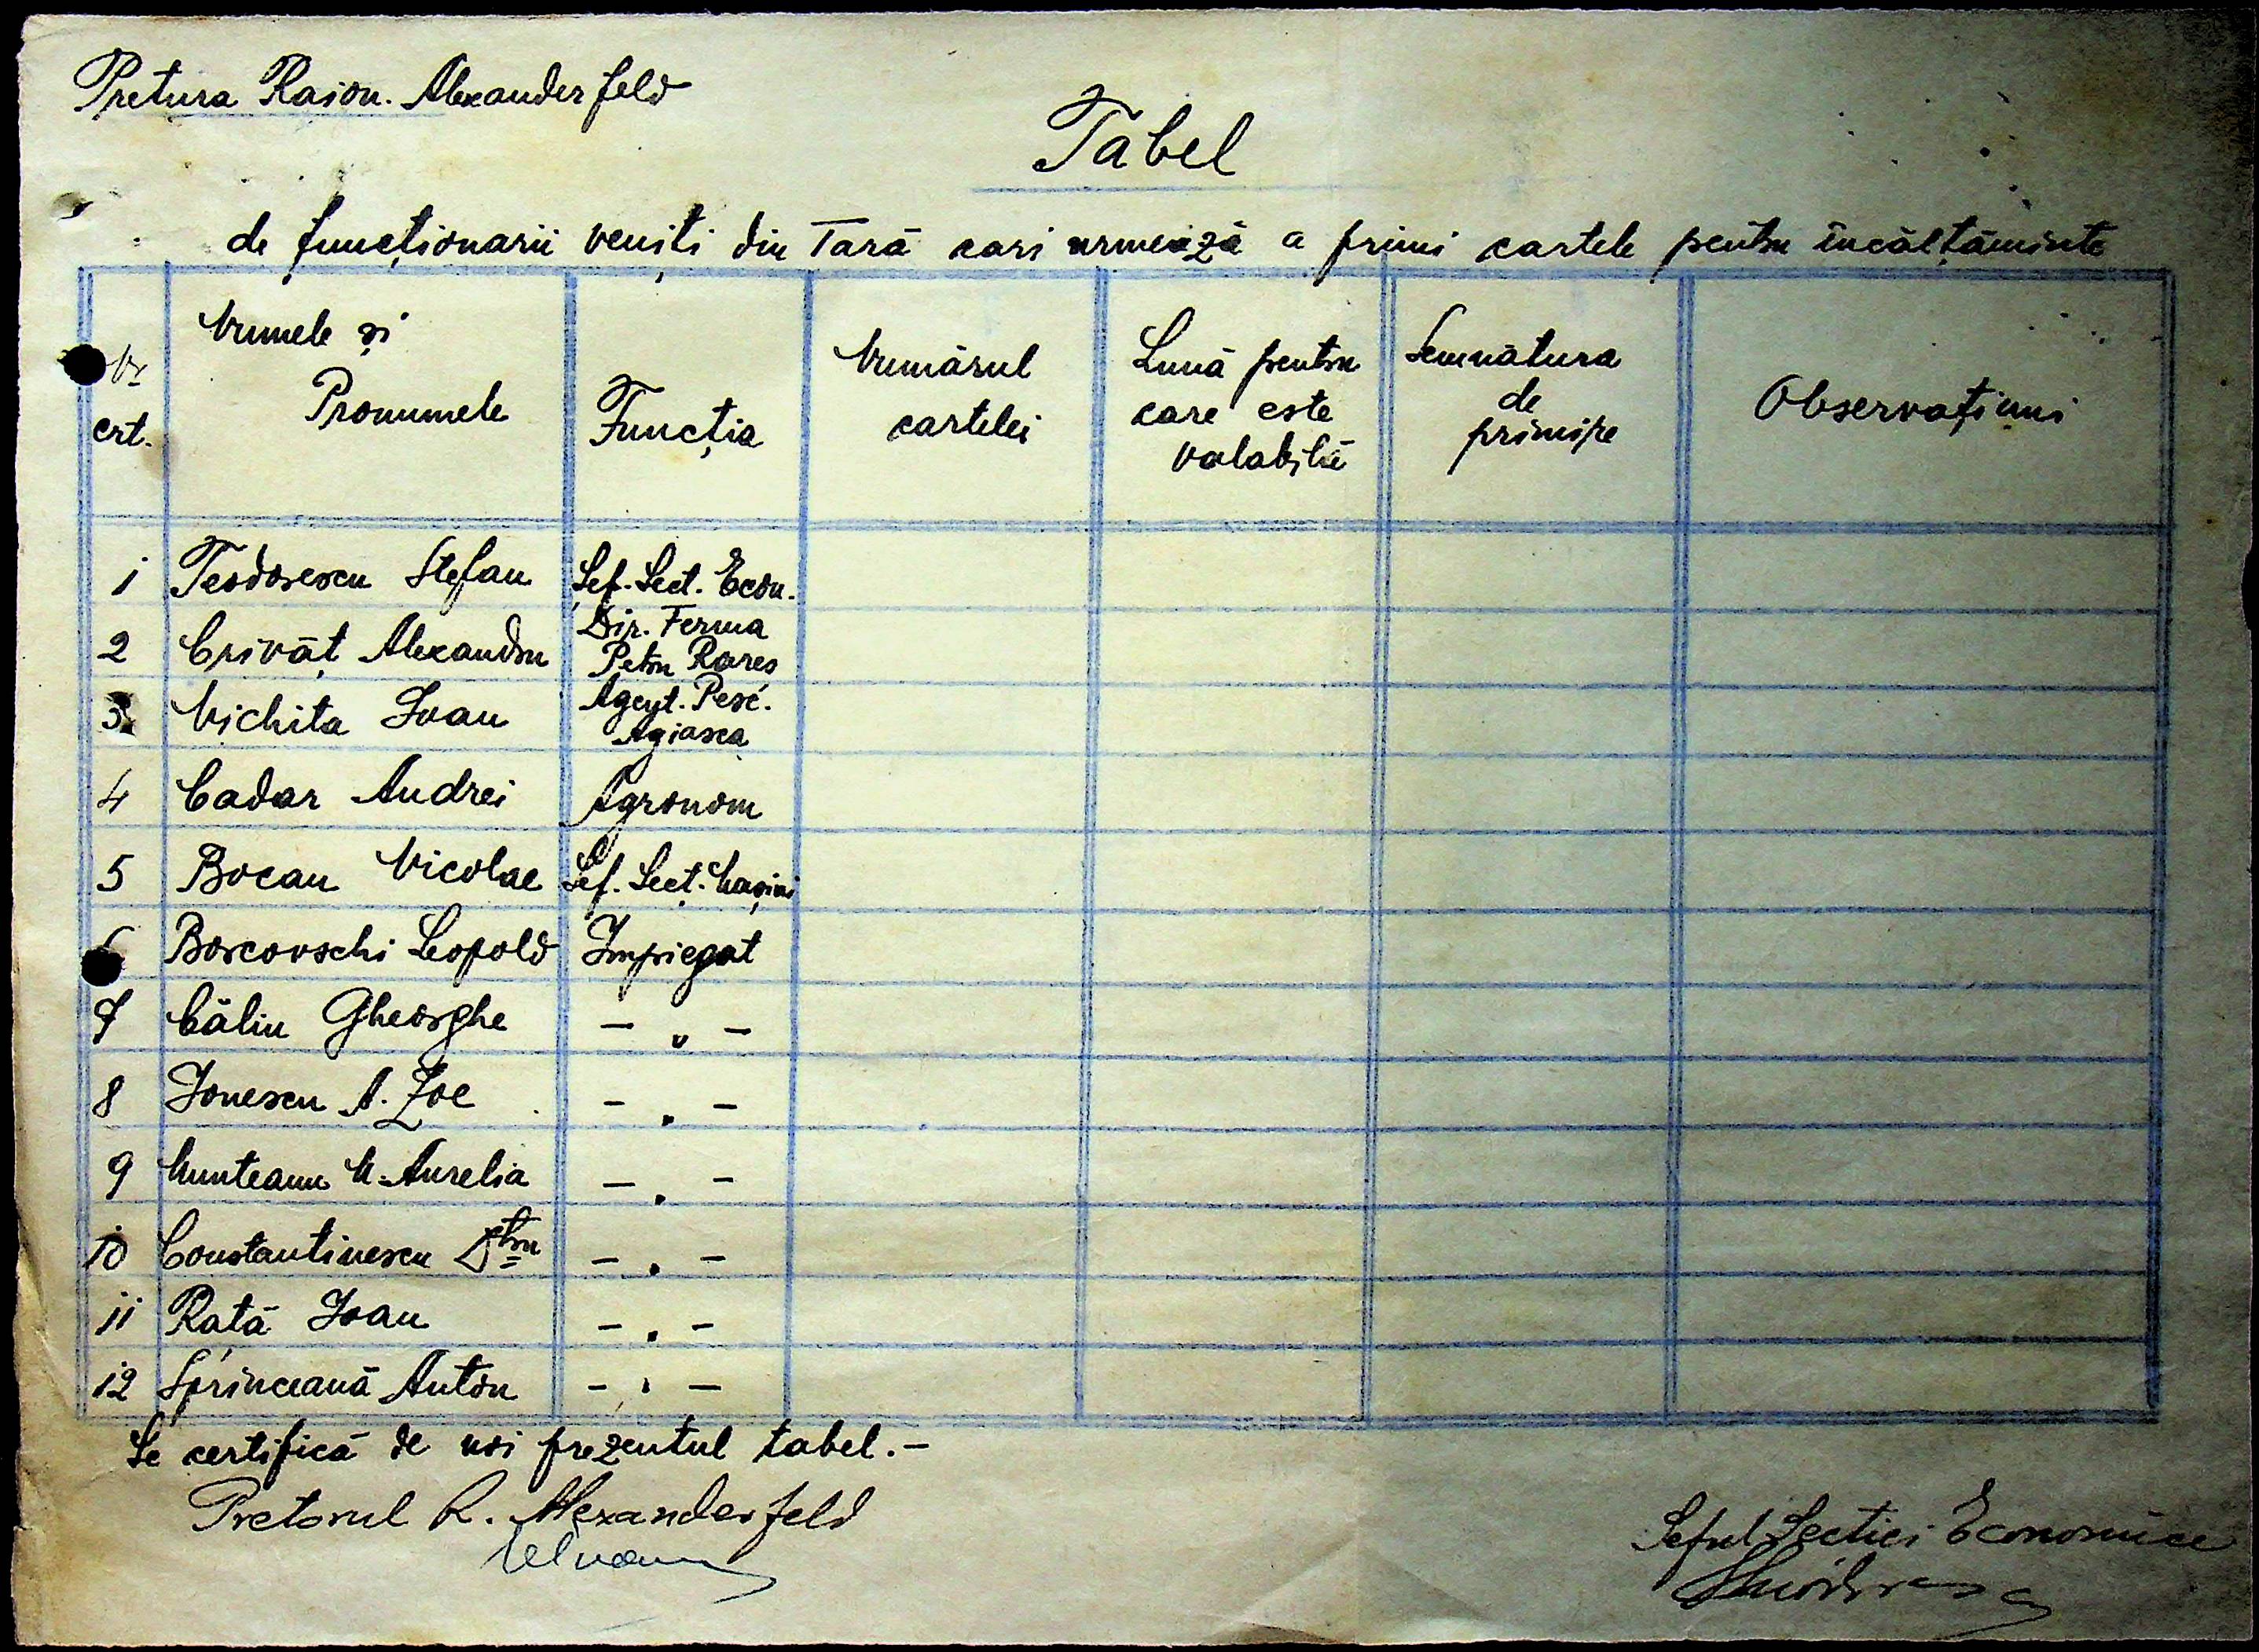 Pretura Raion. Alexanderfeld
Tabel
de funcționarii veniți din Tară cari urmează a primi cartele pentru încălțăminte
Nr crt. Numele și Pronumele Funcția Numărul cartelei Lună pentru care este valabilă Semnătura de primire Observațiuni
1 Teodorescu Stefan Șef. Sect. Econ.
2 Crivăț Alexandru Dir. Ferma Petru Rareș
3. Nichita Ioan Agent. Pesc. Agiasca
4 Cadar Andrei Agronom
5 Bocan Nicolae Șef. Secț. Mașini
6 Borcovschi Leopold Impiegat
7 Călin Gheorghe - „ -
8 Ionescu A. Zoe - „ -
9 Munteanu M. Aurelia - „ -
10 Constantinescu Dtru - „ -
11 Rată Ioan - „ -
12 Sprinceană Anton - „ -
Se certifică de noi prezentul tabel.-
Pretorul R. Alexanderfeld
Seful Sectiei Economice